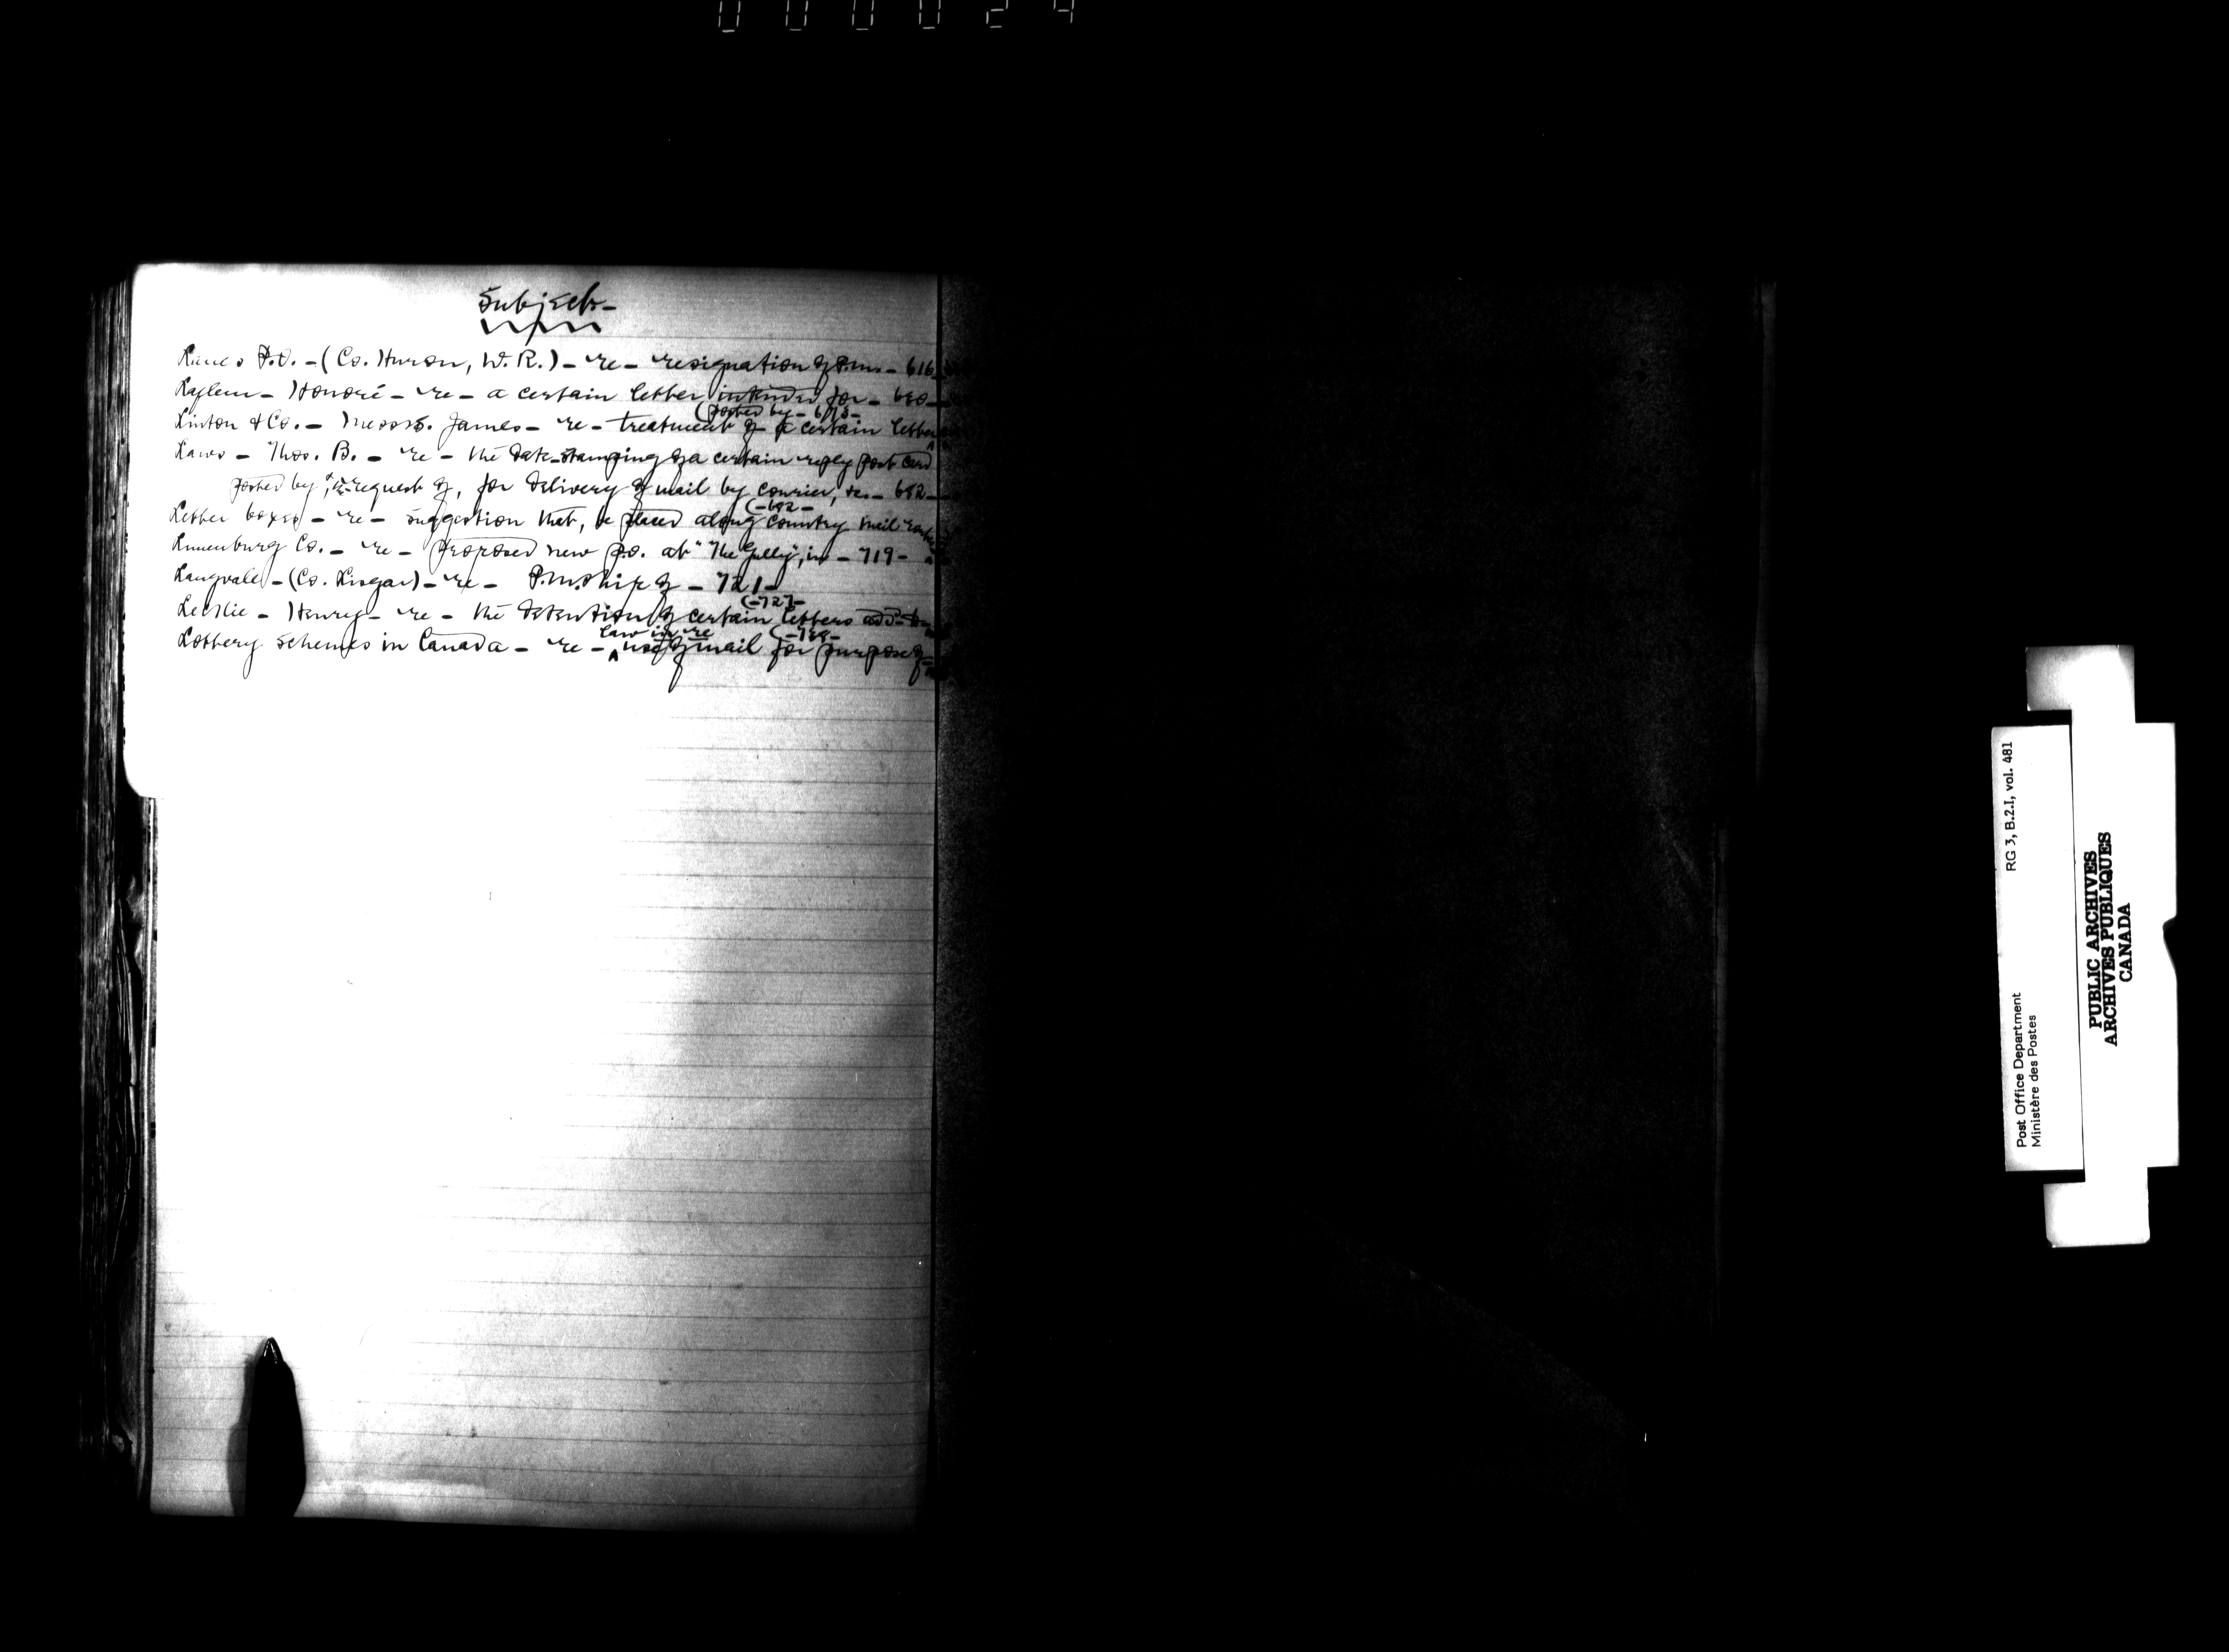 000024
Subjects-
Lanes P.O. - (Co. Huron, W.R.) - re - resignation of P.m. - 616
Laflem - Honoré - re - a certain letter intended for - 680 -
(posted by - 678 -
Linton & Co. - Messrs. James - re - treatment of a certain letter
Laws - Thos. B. - re - the date-stamping of a certain reply post card
posted by, & re request of, for delivery of mail by courier, &c. - 682 -
(-682-
Letter boxes - re - suggestion that, be placed along country mail
Lunenburg Co. - re - proposed new p.o. at "The Gully", in - 719 -
Langvale - (Co. Lisgar) - re - P.m.ship of - 721 -
(-727-
Leslie - Henry - re - the detention of certain letters add-
law in re
Lottery schemes in Canada - re - use of mail for purpose of -
RG 3, B.2.I, vol. 481
Post Office Department
Ministère des Postes
PUBLIC ARCHIVES
ARCHIVES PUBLIQUES
CANADA